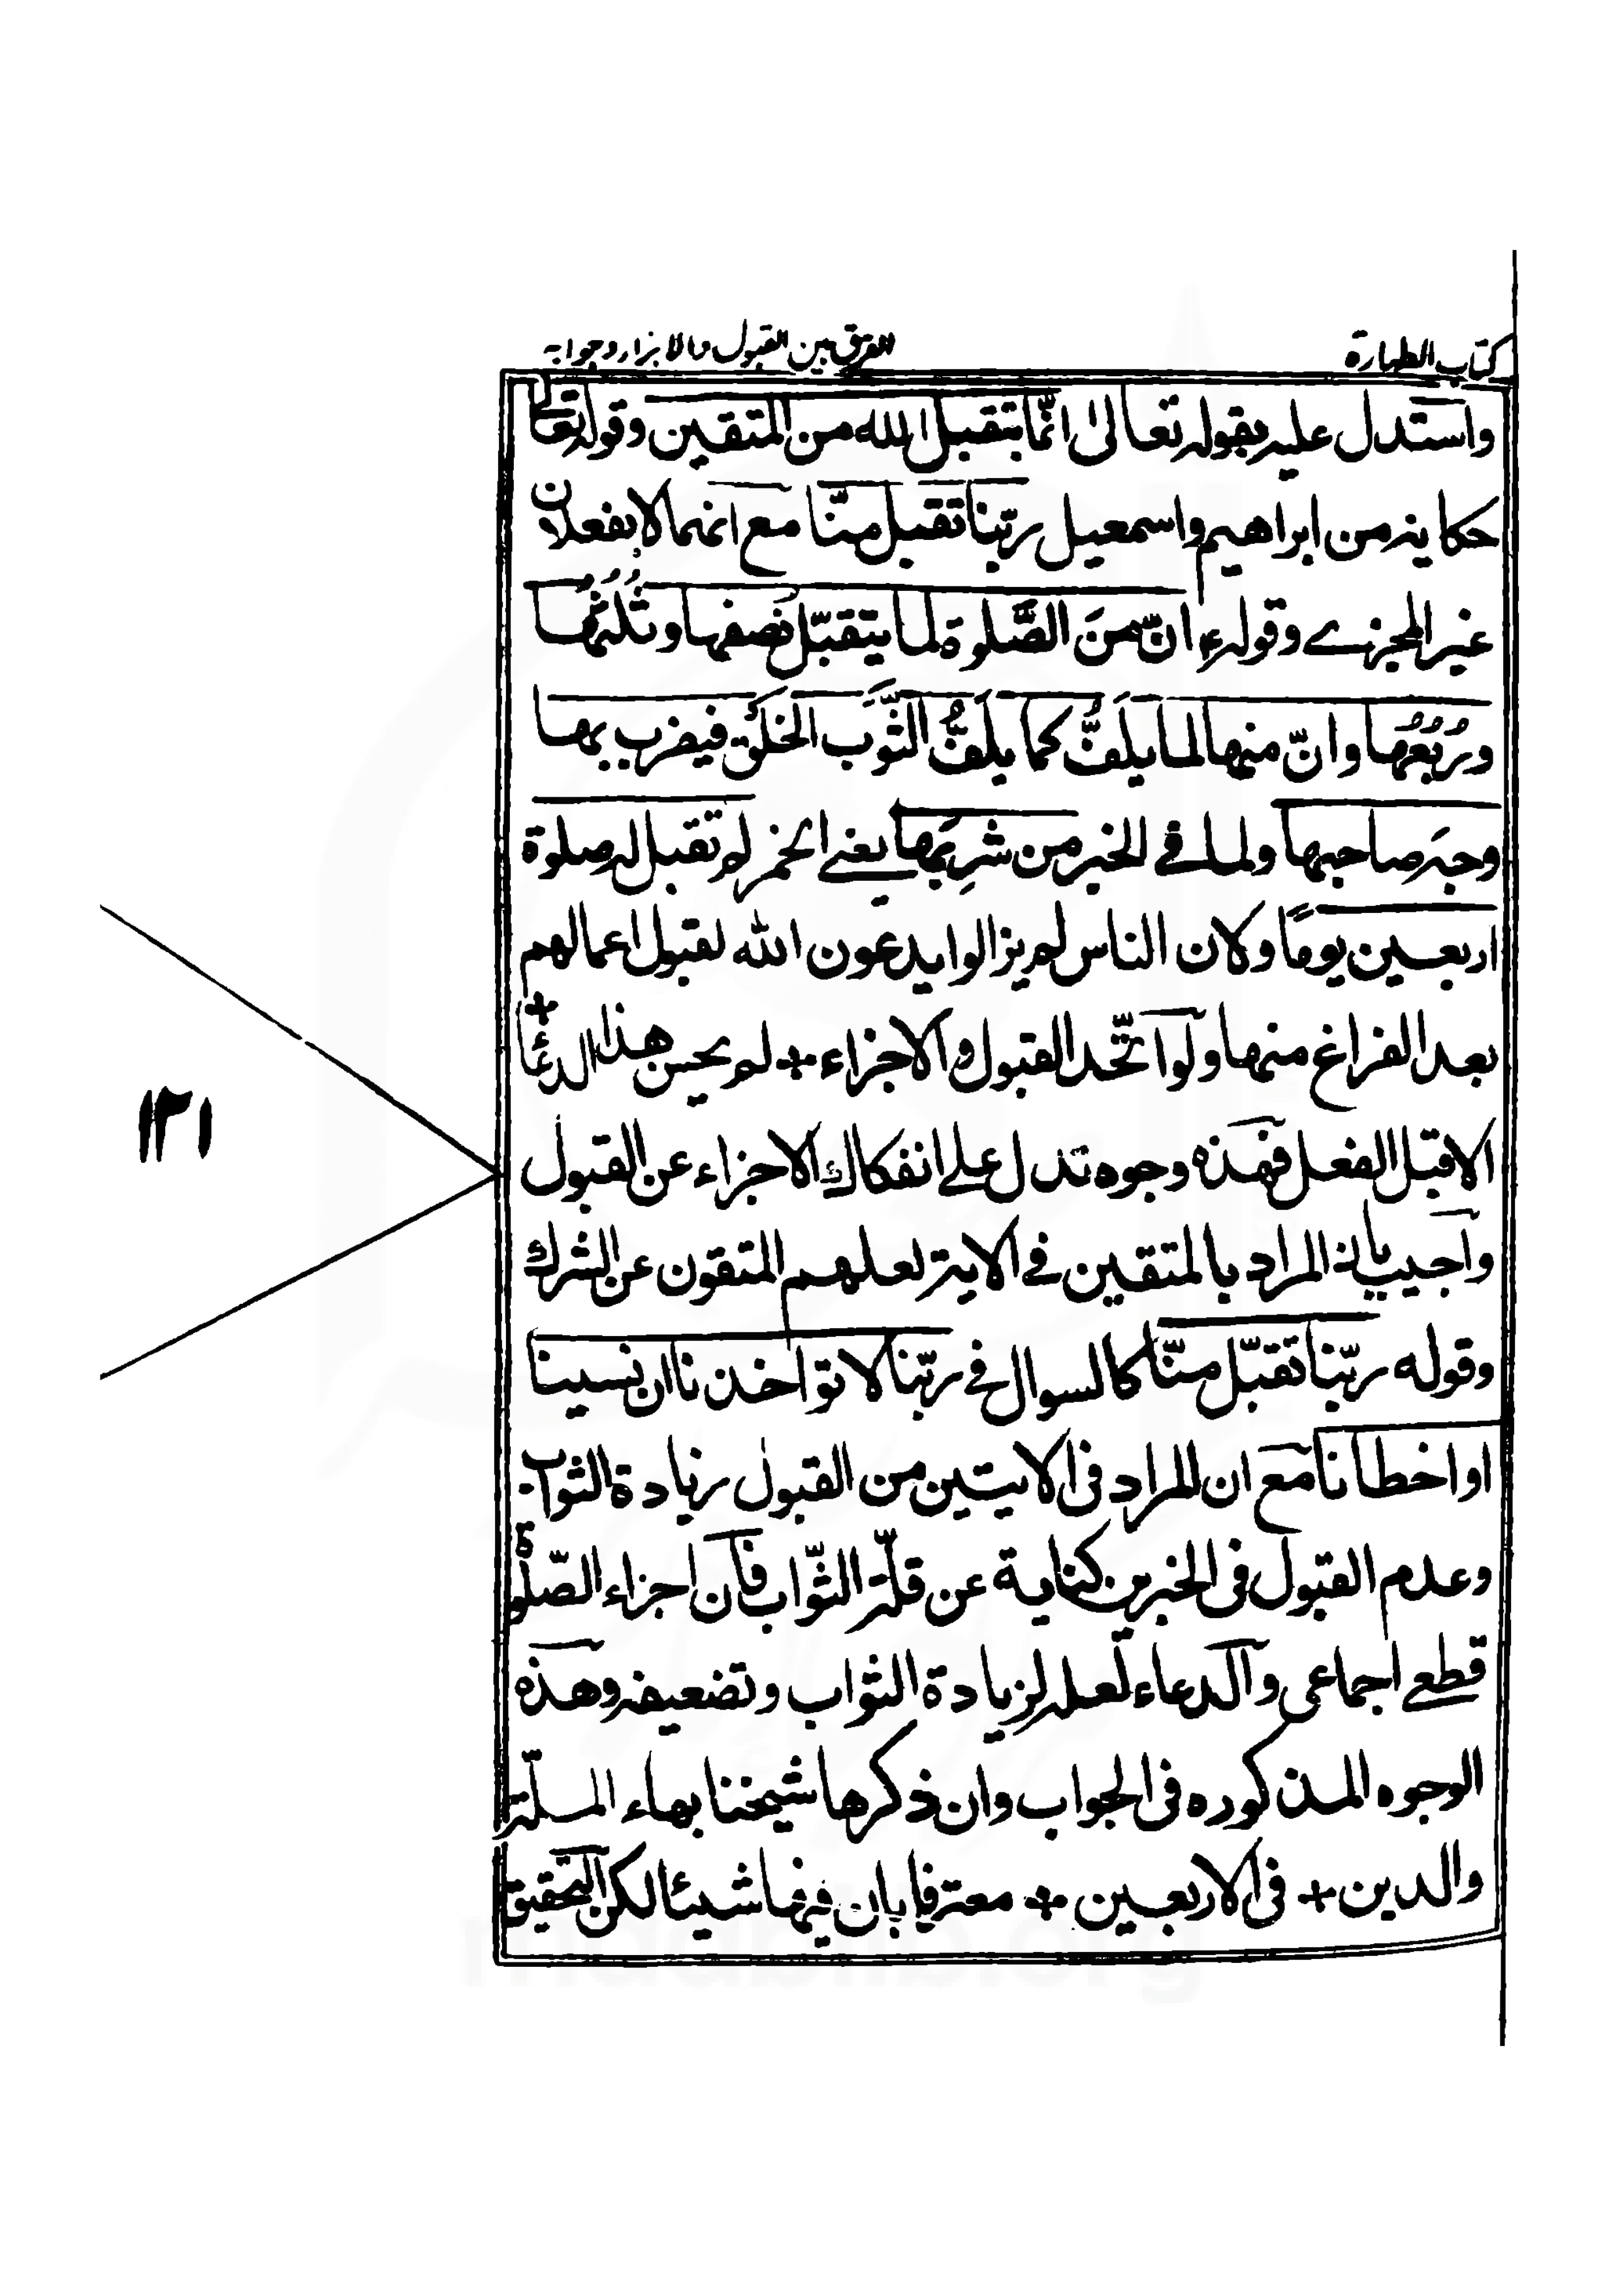 كتاب الطهارة
الفرق بين القبول والاجزاء وجوابه
واستدل عليه بقوله تعالى انّما يتقبل الله من المتقين وقوله تعالى
حكاية من ابراهيم واسمعيل ربّنا تقبل منّا مع انهما لا يفعلان
غير المجزے وقولهؑ انّ منَ الصَّلوة لما يتقبّل نصفها وثُلثُها
ورُبُعُها وانّ منها لما يلَفُّ كما يلَفُّ الثَّوب الخَلَق فيضرب بها
وجهَ صاحبها ولما فے الخبر من شرِبَها يعنے الخمر لم تقبل له صلوة
اربعين يومًا ولان الناس لم يزالوا يدعون الله لقبول اعمالهم
بعد الفراغ منها ولو اتّحد القبول والاجزاء + لم يحسن هذا الدعاء +
الا قبل الفعل فهذه وجوه تدل علے انفكاك الاجزاء عن القبول
واجيب بان المراد بالمتقين فے الاية لعلهم المتقون عن الشرك
وقوله ربّنا تقبّل منّا كالسوال فے ربّنا لا تؤاخذنا ان نسينا
او اخطانا مع ان المراد فى الايتين من القبول زيادة الثواب
وعدم القبول فى الخبرين كناية عن قلّة الثّواب فان اجزاء الصّلوة
قطعے اجماعى والدعاء لعله لزيادة الثواب وتضعيفه وهذه
الوجوه المذكوره فى الجواب وان ذكرها شيخنا بهاء الملّة
والدين + فى الاربعين + معترفا بان فيها شيئا لكن التحقيق
١٣١